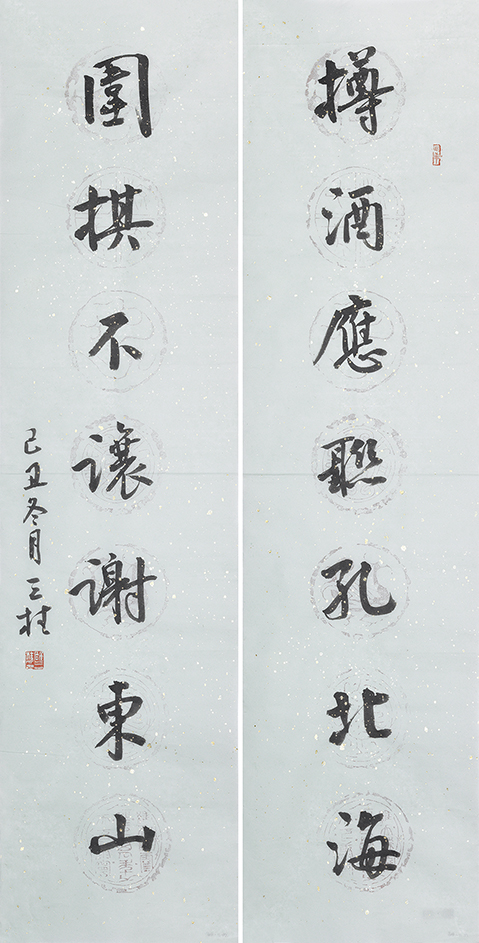 樽酒應聯孔北海
圍棋不讓謝東山
己丑冬月